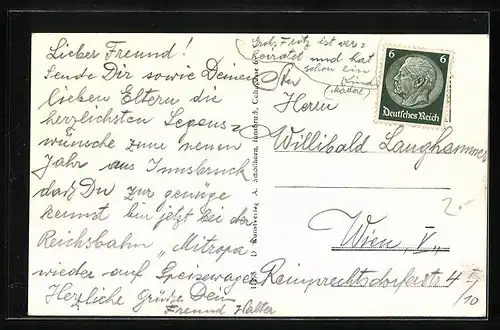 Lieber Freund!
Sende Dir sowie Deinen
lieben Eltern die
herzlichsten Segens=
wünsche zum neuen
Jahr aus Innsbruck
daß Du zur genüge
kennst bin jetzt bei der
Reichsbahn „Mitropa
wieder auf Speisewagen
Herzliche Grüße Dein
Freund Walter
Fritz ist ver=
heiratet und hat
schon ein
Kind
An
Herrn
Willibald Langhammer
Wien, V.,
Reinprechtsdorferstr 4
6 6
Deutsches Reich
Kunstverlag A. Schöllhorn, Innsbruck
2.-